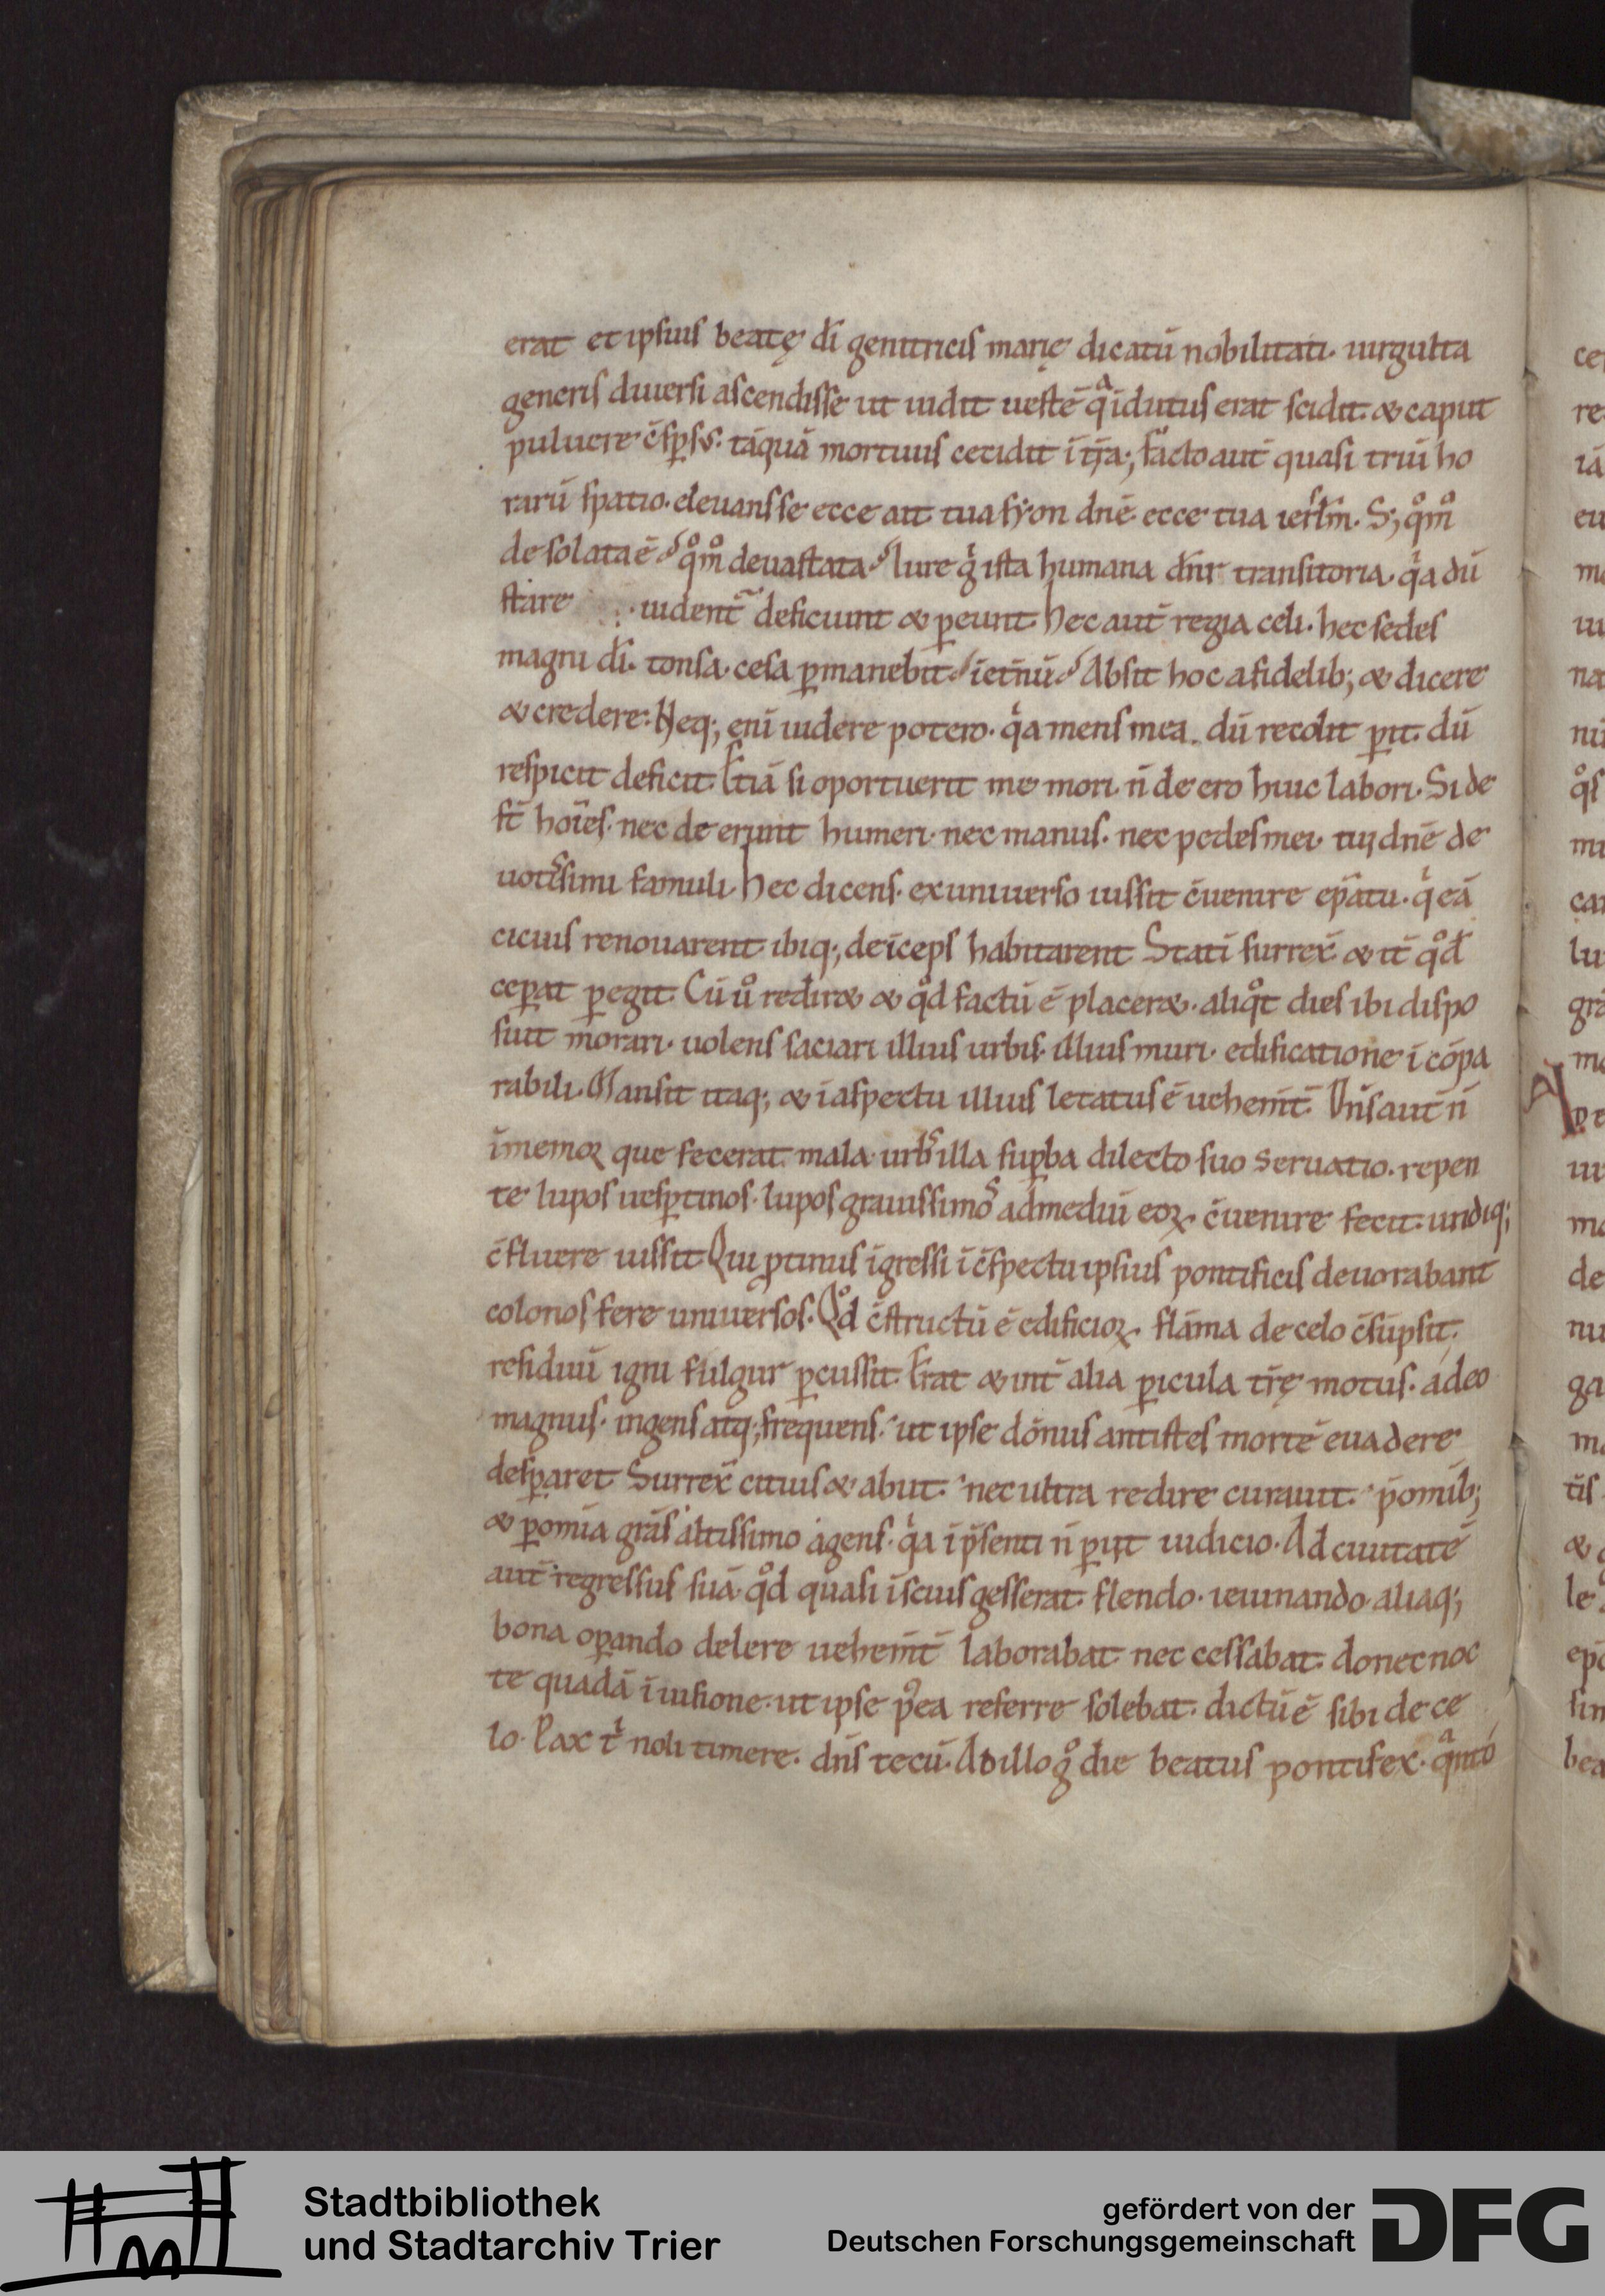 erat et ipsius beatę dī genitricis marię dicatū nobilitati. uirgulta
generis diuersi ascendisse ut uidit uestē qͣ īdutus erat scidit. & caput
puluere c̄sp̱sꝰ. tāquā mortuus cecidit ī tr̄a; facto aut̄ quasi triū ho
rarū spatio. eleuans se ecce ait tua syon dnē. ecce tua ierl̄m. S; qͦmͦ
desolata ē. qͦmͦ deuastata. Iure gͥ ista humana dn̄r transitoria. qͥa dū
stare uident᷑ deficiunt & p̱eunt. hec aut̄ regia celi. hec sedes
magni dī. tonsa. cesa p̱manebit īet̄nū. Absit hoc a fidelib; & dicere
& credere. Neq; enī uidere potero. qͥa mens mea dū recolit p̱it. dū
respicit deficit. Etiā si oportuerit me mori. n̄ deero huic labori. Si de
st̄ hoīes. nec deerunt humeri. nec manus. nec pedes mei. tui dnē de
uotissimi famuli. hec dicens. ex uniuerso iussit c̄uenire ep̄atu. qͥ eā
cicius renouarent ibiq; deīceps habitarent. Statī surrex̄ & it̄ qͦd
cep̱at p̱egit. Cū uͦ redir& & qͦd factū ē placer&. aliqͦt dies ibi dispo
suit morari. uolens saciari illius urbis. illius muri. edificatione īcōpa
rabili. Mansit itaq; & ī aspectu illius letatus ē uehem̄t̄. Dn̄s aut̄ n̄
īmemoꝝ que fecerat mala urbs illa sup̱ba dilecto suo seruatio. repen
te lupos uesp̱tinos. lupos grauissimos ad mediū eoꝝ c̄uenire fecit. undiq;
c̄fluere iussit. Qui ꝓtinus īgressi ī c̄spectu ipsius pontificis deuorabant
colonos fere uniuersos. Qͦd c̄structū ē edificioꝝ flāma de celo c̄sūpsit.
residuū igni fulgur p̱cussit. Erat & int̄ alia p̱icula tr̄ę motus. adeo
magnus. ingens atq; frequens. ut ipse dōnus antistes mortē euadere
desp̱aret. Surrex̄ citius & abiit. nec ultra redire curauit. p̱ omīb;
& p̱ omia grās altissimo agens. qͥa ī p̄senti n̄ p̱iit iudicio. Ad ciuitatē
aut̄ regressus suā. qͦd quasi īscius gesserat. flendo. ieiunando. aliaq;
bona op̱ando delere uehem̄t̄ laborabat. nec cessabat. donec noc
te quadā ī uisione. ut ipse p̱ꝰea referre solebat. dictū ē sibi de ce
lo. Pax tͥ noli timere. dn̄s tecū. Ab illo gͦ die beatus pontifex. qͣnto
Stadtbibliothek
und Stadtarchiv Trier
gefördert von der
Deutschen Forschungsgemeinschaft
DFG